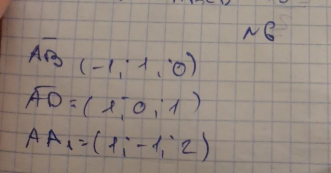 №6
AB (-1; 1; 0)
AD=(1; 0; 1)
AA₁=(1; -1; 2)